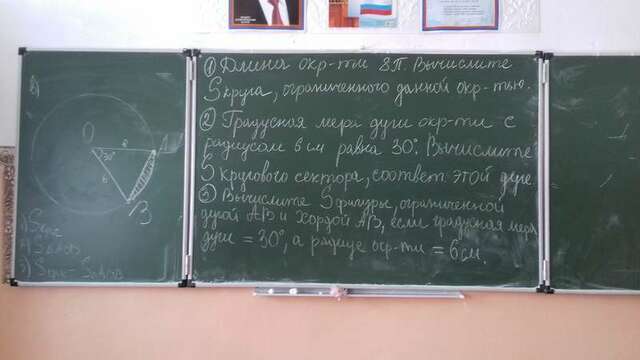 ① Длина окр-ти 8π. Вычислите
Sкруга, ограниченного данной окр-тью.
② Градусная мера дуги окр-ти с
радиусом 6 см равна 30°. Вычислите
S кругового сектора, соответ этой дуге.
③ Вычислите Sфигуры, ограниченной
дугой АВ и хордой АВ, если градусная мера
дуги = 30°, а радиус окр-ти = 6см.
O
6
30°
6
B